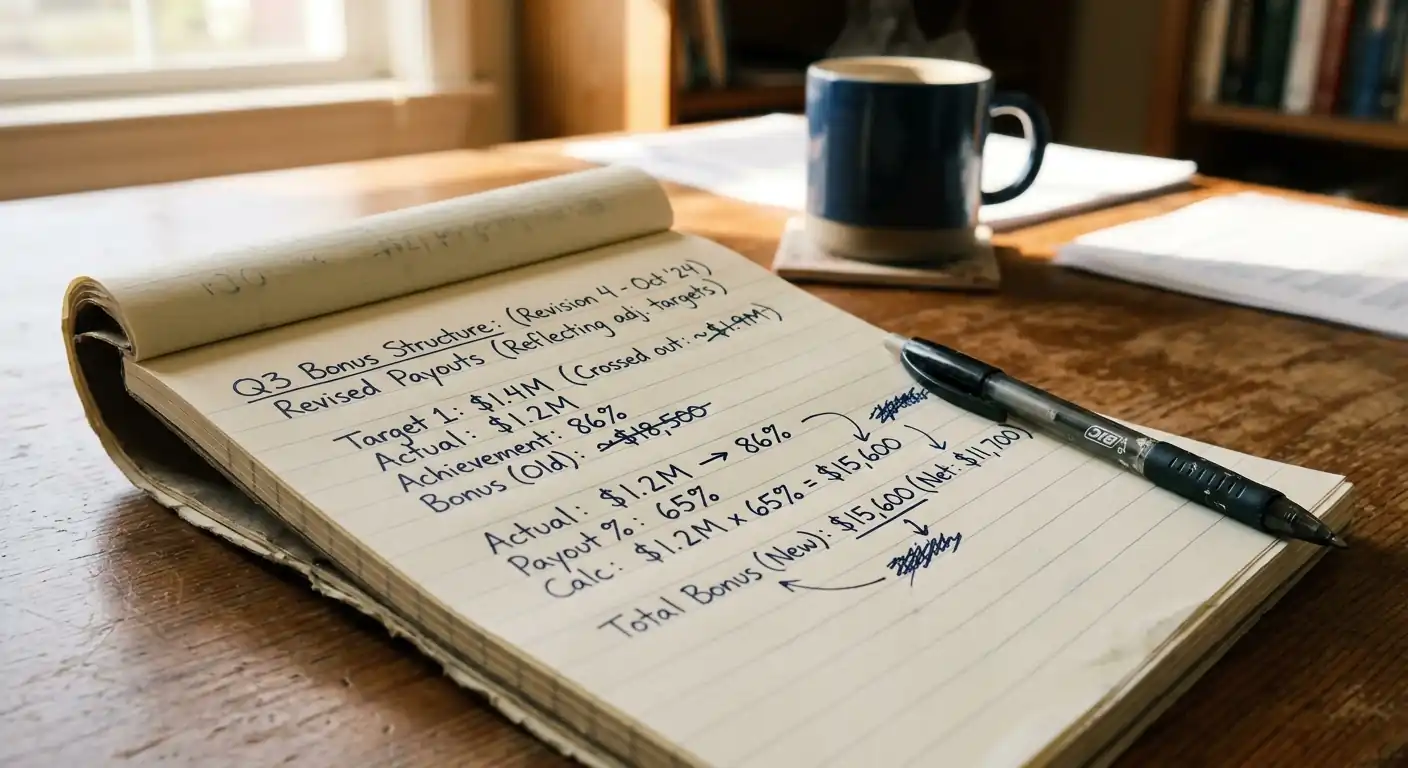 Q3 Bonus Structure: (Revision 4 - Oct '24)
Revised Payouts (Reflecting adj. targets)
Target 1: $1.4M (Crossed out: ~$1.9M)
Actual: $1.2M
Achievement: 86%
Bonus (Old): ~$18,500
Actual: $1.2M → 86%
Payout %: 65%
Calc: $1.2M x 65% = $15,600
Total Bonus (New): $15,600 (Net: $11,700)
BIC